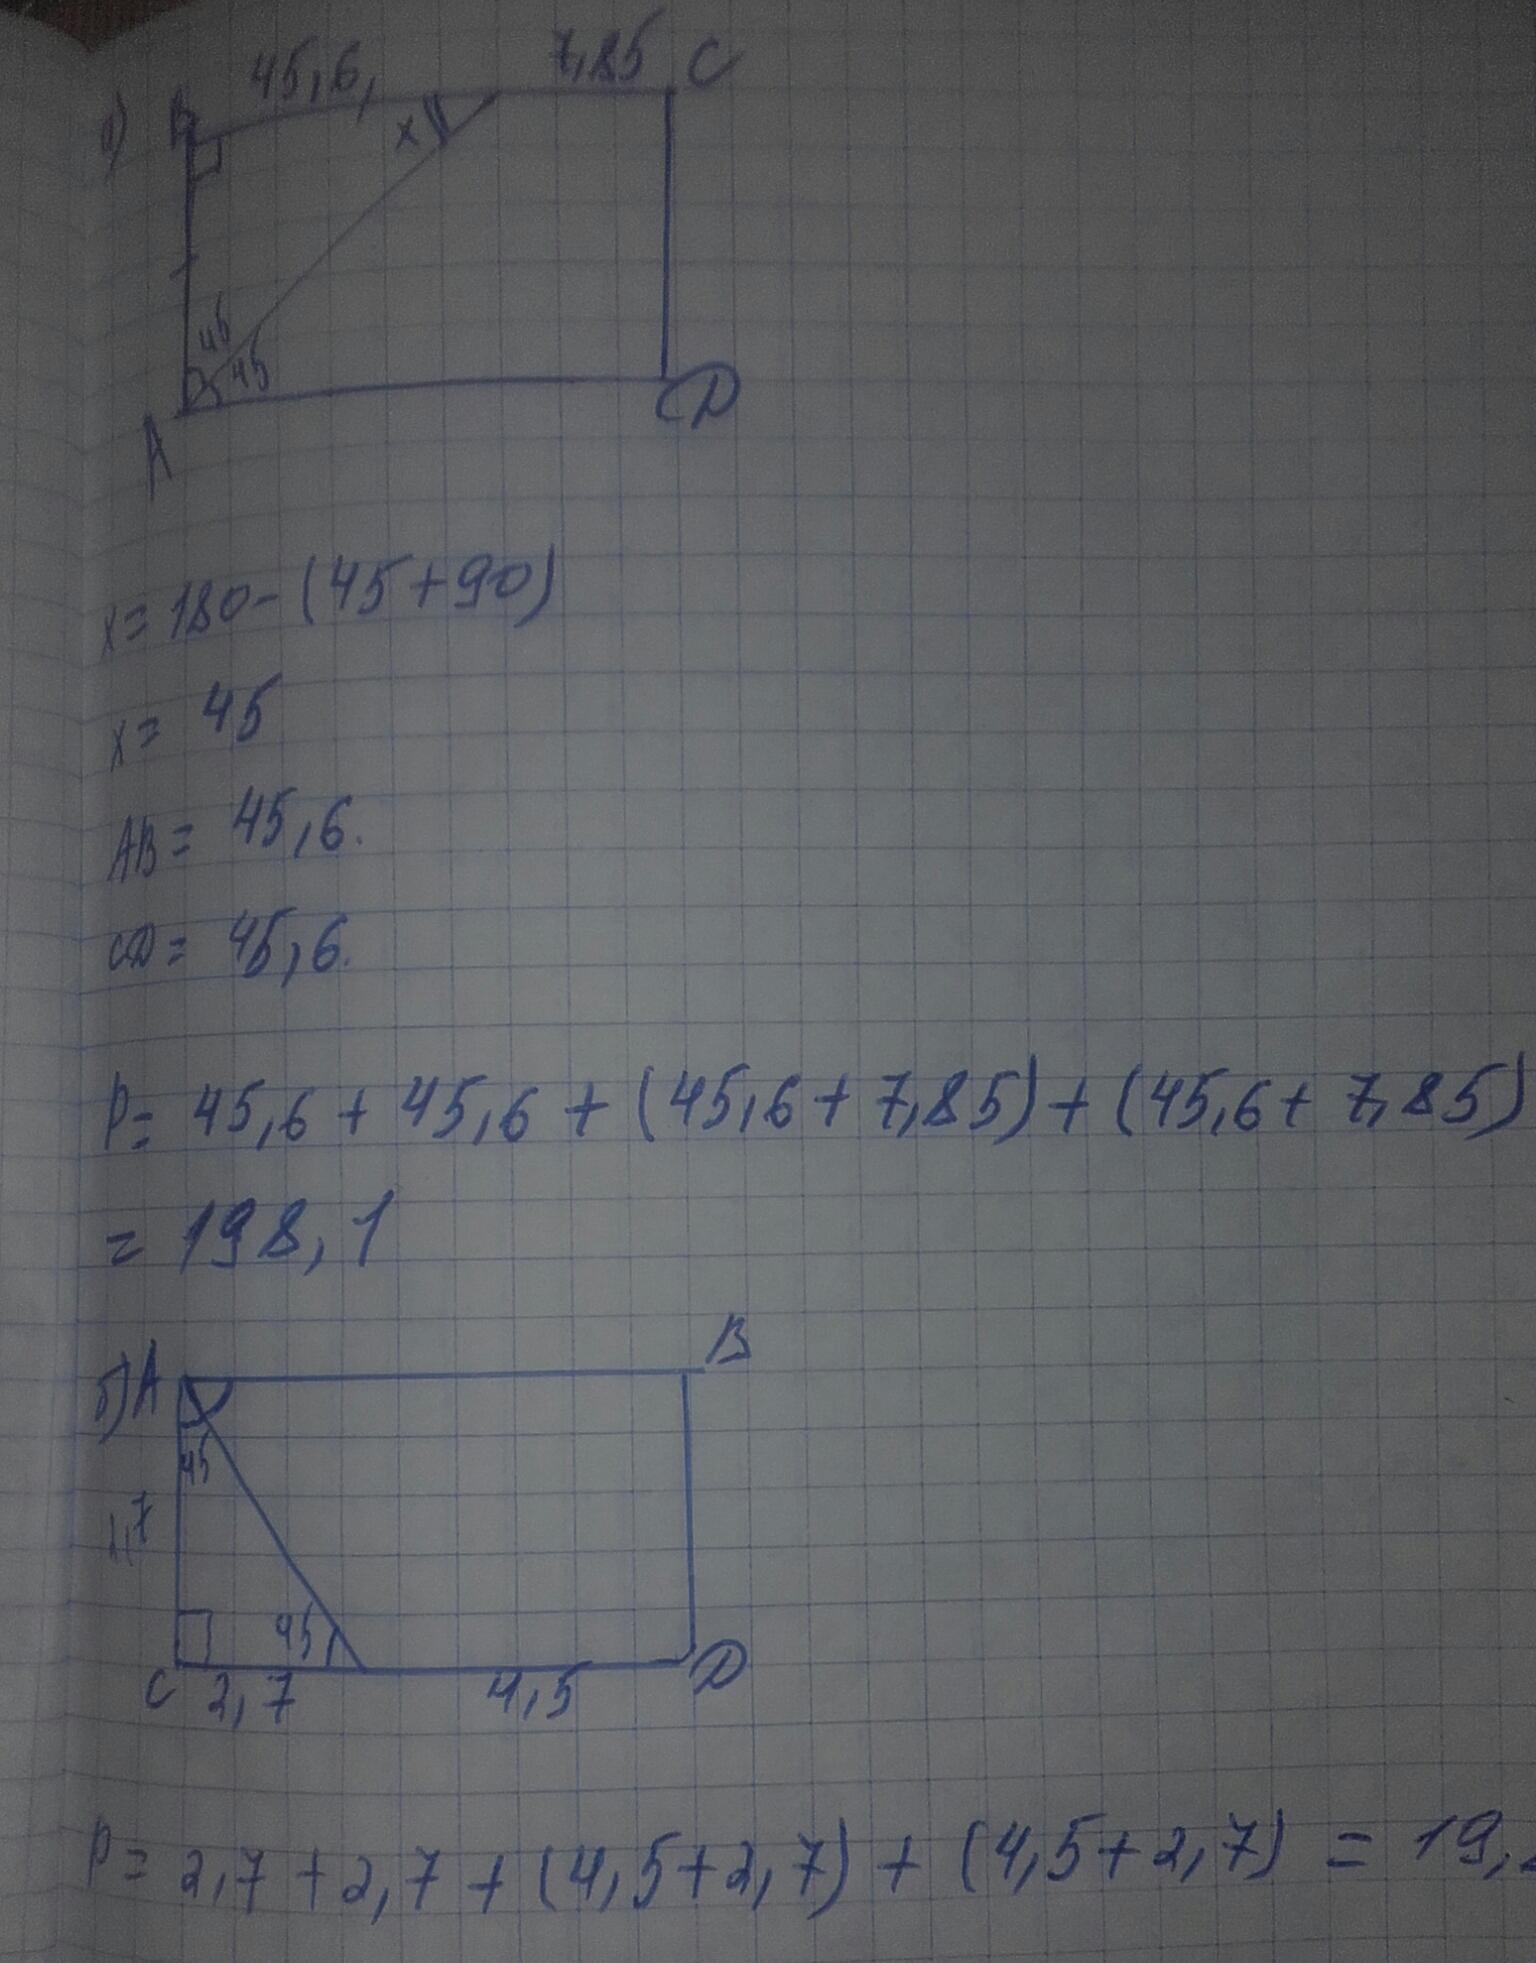 а) B 45,6, 7,85 C
x
45
45
A D
x = 180 - (45+90)
x = 45
AB = 45,6.
CD = 45,6.
P = 45,6 + 45,6 + (45,6 + 7,85) + (45,6 + 7,85)
= 198,1
б) A B
45
45
C 2,7 4,5 D
P = 2,7 + 2,7 + (4,5 + 2,7) + (4,5 + 2,7) = 19,